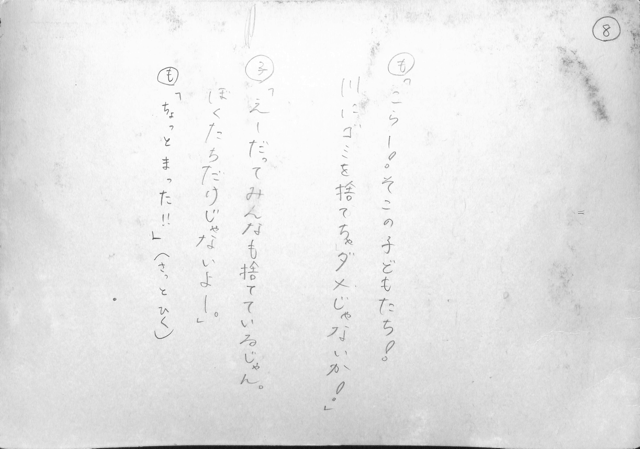 ⑧
も「こらー!そこの子どもたち!
川にゴミを捨てちゃダメじゃないか!」
「えーだってみんなも捨てているじゃん。
ぼくたちだけじゃないよー。」
も「ちょっとまった!!」(さっとひく)